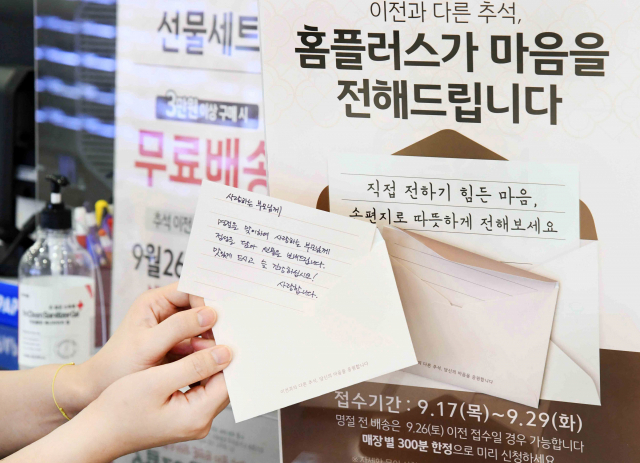 선물세트
3만원 이상 구매 시
무료배송
추석 이전
9월 26
이전과 다른 추석,
홈플러스가 마음을
전해드립니다
직접 전하기 힘든 마음,
손편지로 따뜻하게 전해보세요
사랑하는 부모님께
추석을 맞이하여 사랑하는 부모님께
정성을 담아 선물을 보내드립니다.
맛있게 드시고 늘 건강하십시오!
사랑합니다.
접수기간 : 9.17(목)~9.29(화)
명절 전 배송은 9.26(토) 이전 접수일 경우 가능합니다
매장 별 300분 한정으로 미리 신청하세요.